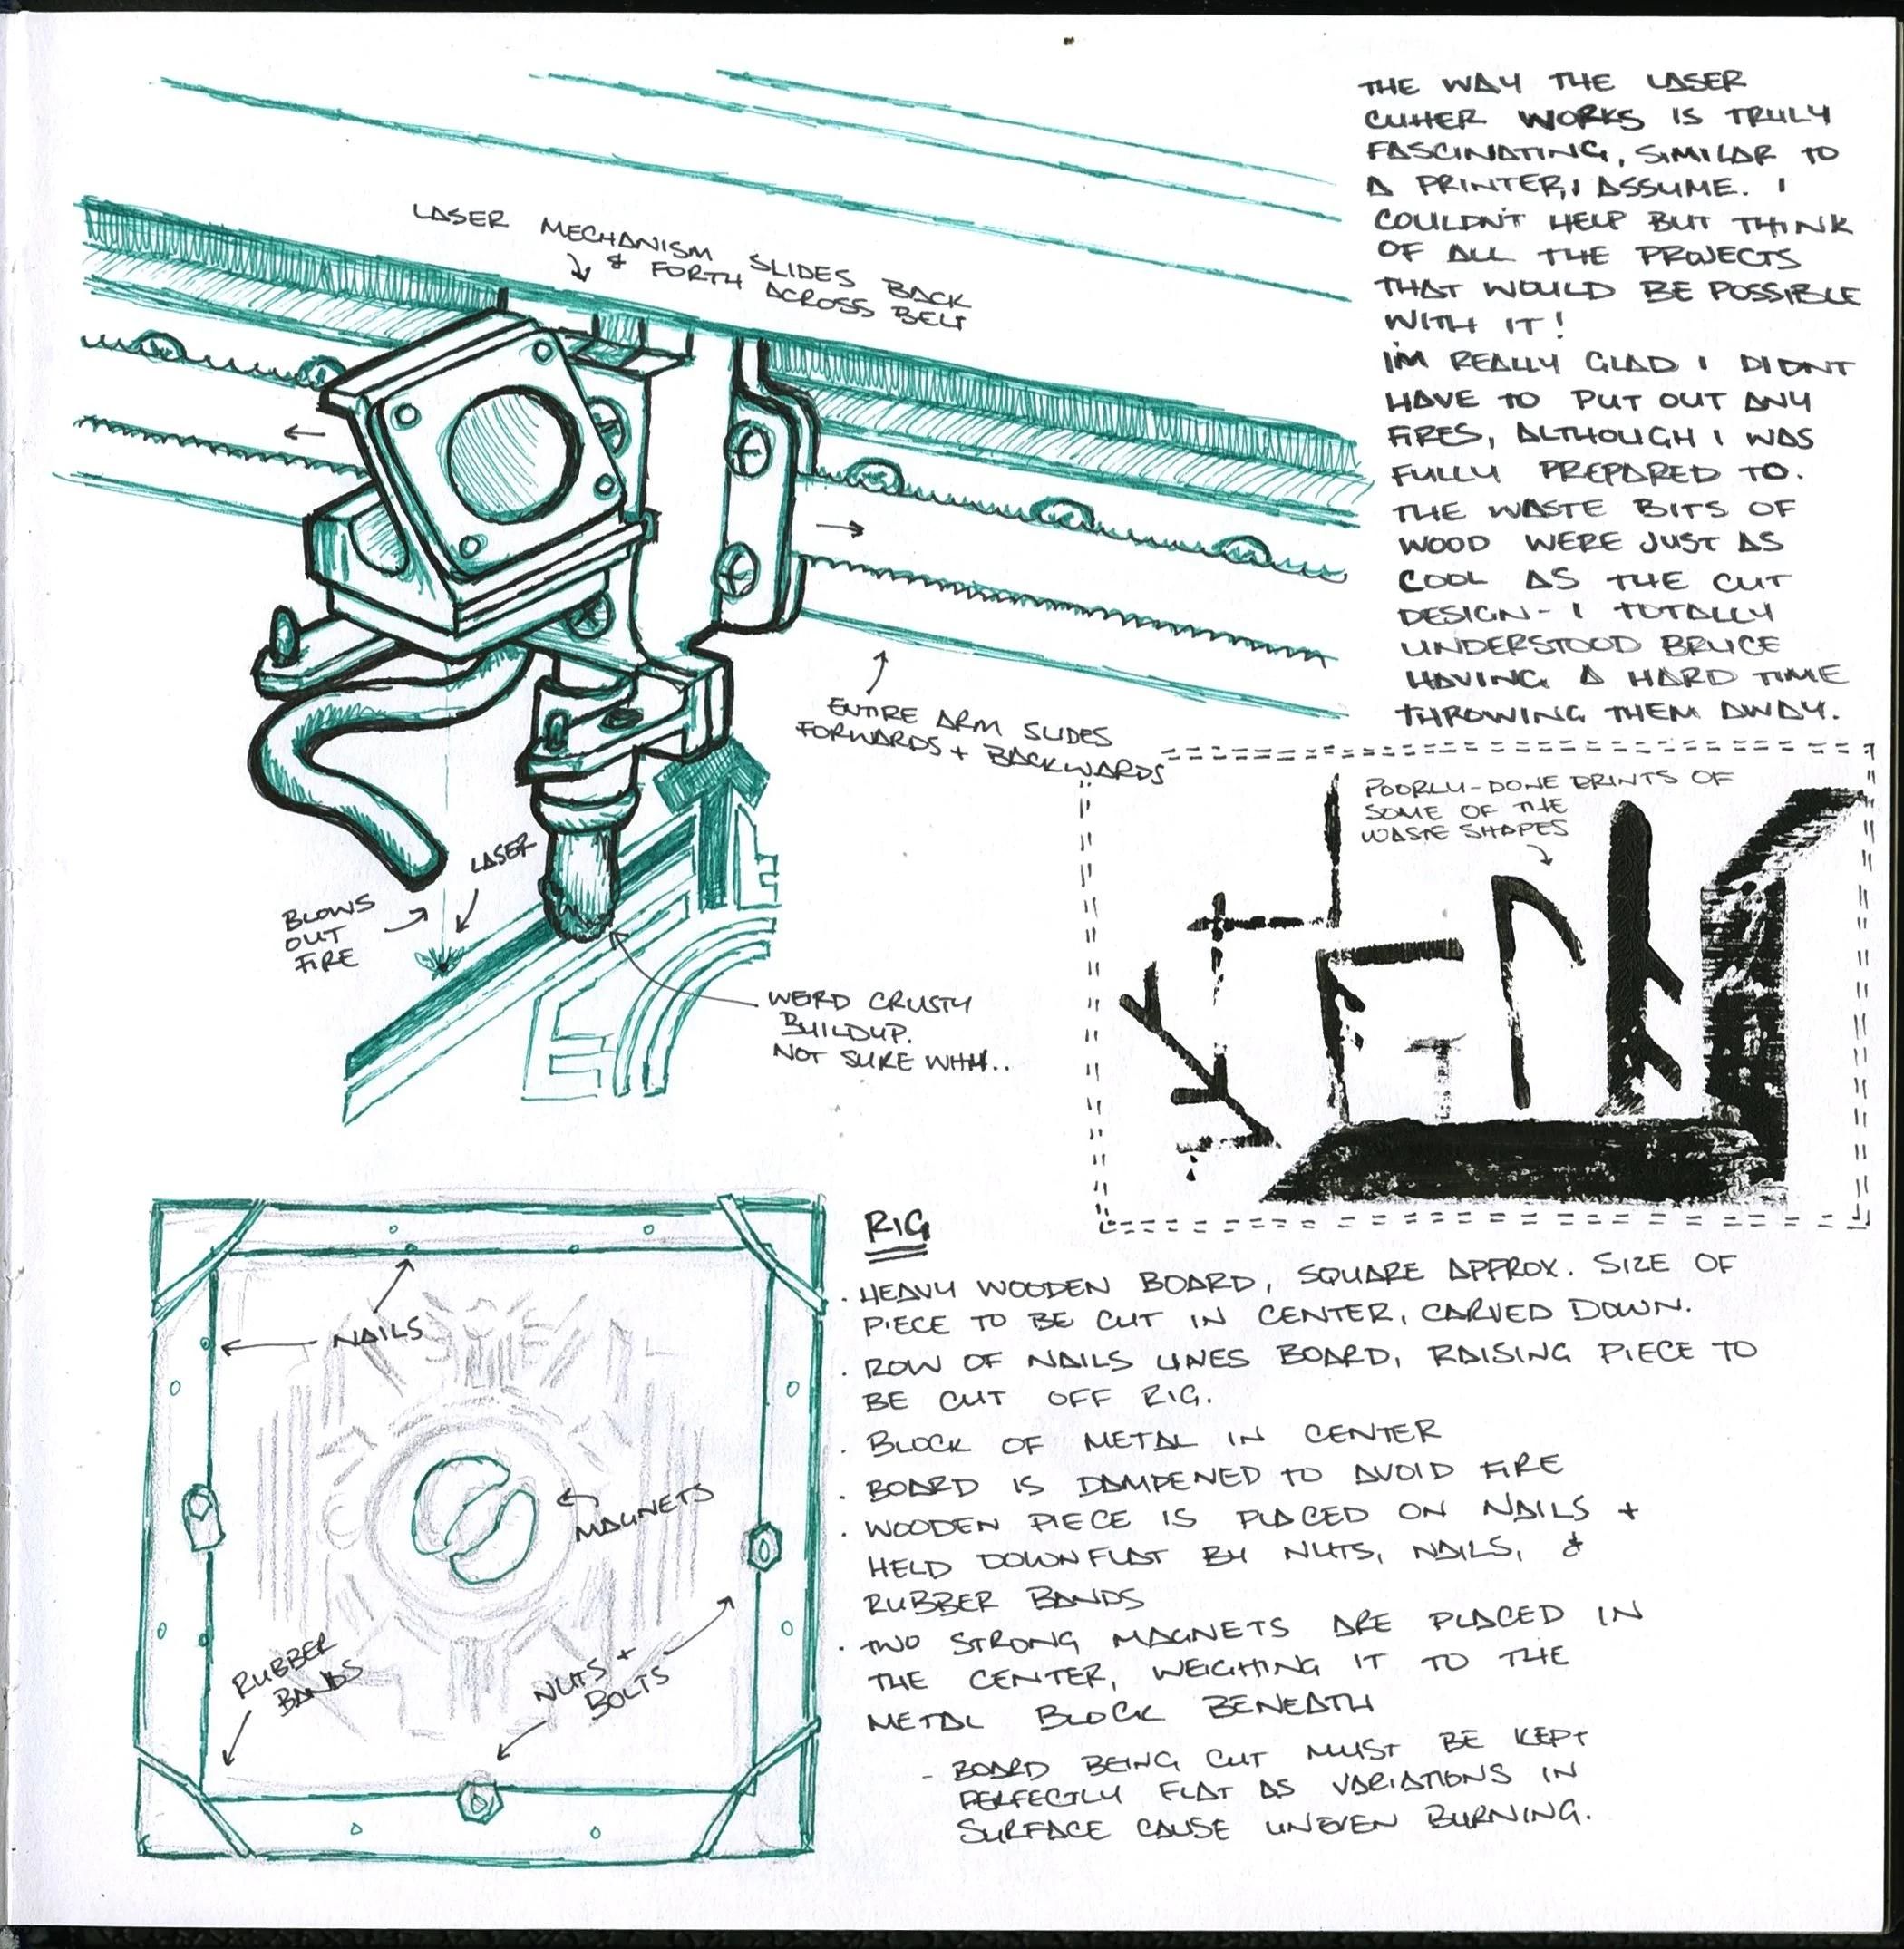 THE WAY THE LASER
CUTTER WORKS IS TRULY
FASCINATING, SIMILAR TO
A PRINTER, I ASSUME. I
COULDN'T HELP BUT THINK
OF ALL THE PROJECTS
THAT WOULD BE POSSIBLE
WITH IT!
I'M REALLY GLAD I DIDNT
HAVE TO PUT OUT ANY
FIRES, ALTHOUGH I WAS
FULLY PREPARED TO.
THE WASTE BITS OF
WOOD WERE JUST AS
COOL AS THE CUT
DESIGN- I TOTALLY
UNDERSTOOD BRUCE
HAVING A HARD TIME
THROWING THEM AWAY.
LASER MECHANISM SLIDES BACK
& FORTH ACROSS BELT
ENTIRE ARM SLIDES
FORWARDS + BACKWARDS
LASER
BLOWS
OUT
FIRE
WEIRD CRUSTY
BUILDUP.
NOT SURE WHY..
POORLY-DONE PRINTS OF
SOME OF THE
WASTE SHAPES
NAILS
MAGNETS
RUBBER
BANDS
NUTS +
BOLTS
RIG
· HEAVY WOODEN BOARD, SQUARE APPROX. SIZE OF
PIECE TO BE CUT IN CENTER, CARVED DOWN.
· ROW OF NAILS LINES BOARD, RAISING PIECE TO
BE CUT OFF RIG.
· BLOCK OF METAL IN CENTER
· BOARD IS DAMPENED TO AVOID FIRE
· WOODEN PIECE IS PLACED ON NAILS +
HELD DOWN FLAT BY NUTS, NAILS, &
RUBBER BANDS
· TWO STRONG MAGNETS ARE PLACED IN
THE CENTER, WEIGHING IT TO THE
METAL BLOCK BENEATH
- BOARD BEING CUT MUST BE KEPT
PERFECTLY FLAT AS VARIATIONS IN
SURFACE CAUSE UNEVEN BURNING.